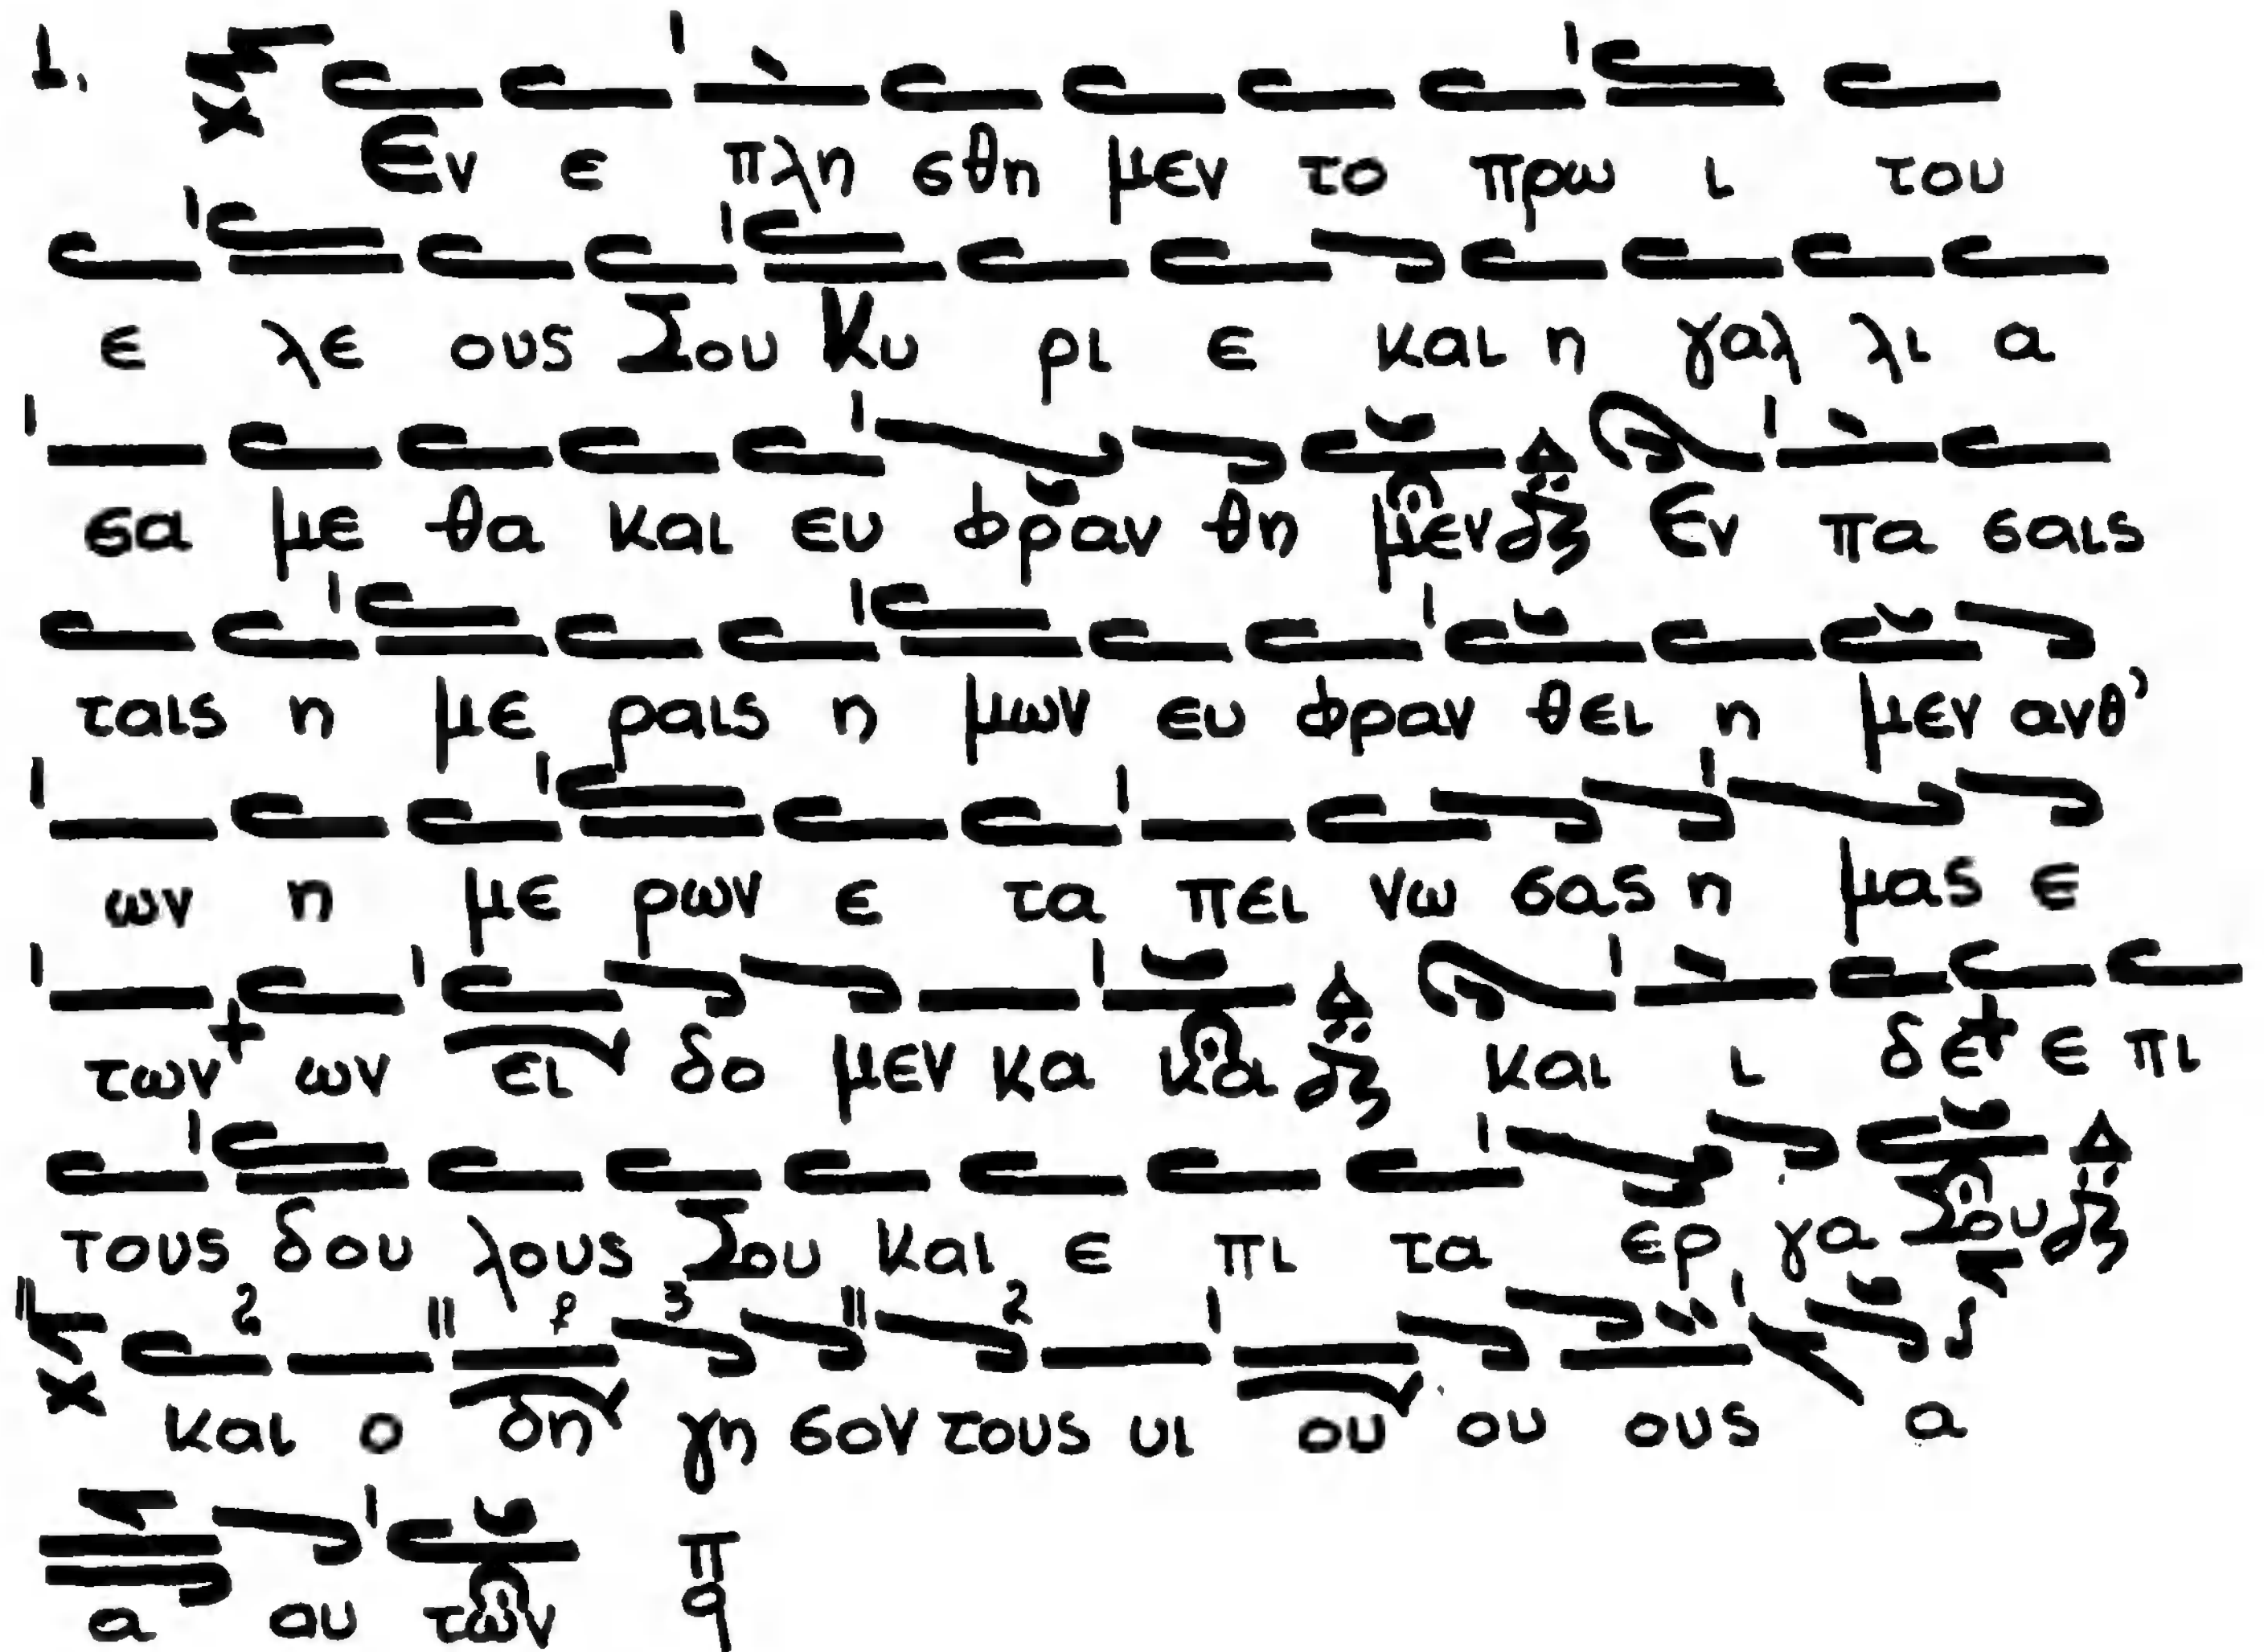 1. Εν ε πλη σθη μεν το πρω ι του
ε λε ους Σου Κυ ρι ε και η γαλ λι α
σα με θα και ευ φραν θη μεν Εν πα σαις
ταις η με ραις η μων ευ φραν θει η μεν ανθ'
ων η με ρων ε τα πει νω σας η μας ε
των ων ει δο μεν κα κα και ι δε ε πι
τους δου λους Σου και ε πι τα ερ γα Σου
και ο δη γη σον τους υι ου ου ους α
α αυ των